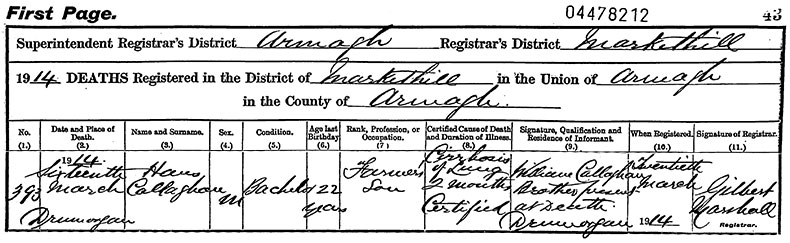 First Page. 04478212 43
Superintendent Registrar's District Armagh Registrar's District Markethill
1914 DEATHS Registered in the District of Markethill in the Union of Armagh
in the County of Armagh.
No. (1.) Date and Place of Death. (2.) Name and Surname. (3.) Sex. (4.) Condition. (5.) Age last Birthday. (6.) Rank, Profession, or Occupation. (7) Certified Cause of Death and Duration of Illness. (8.) Signature, Qualification and Residence of Informant. (9.) When Registered. (10.) Signature of Registrar. (11.)
393
1914
Sixteenth
March
Drumorgan
Hans
Callaghan
M
Bachelor
22
years
Farmers
Son
Cirrhosis
of Lung
2 months
Certified
William Callaghan
Brother present
at Death.
Drumorgan
Twentieth
March
1914
Gilbert
Marshall
Registrar.